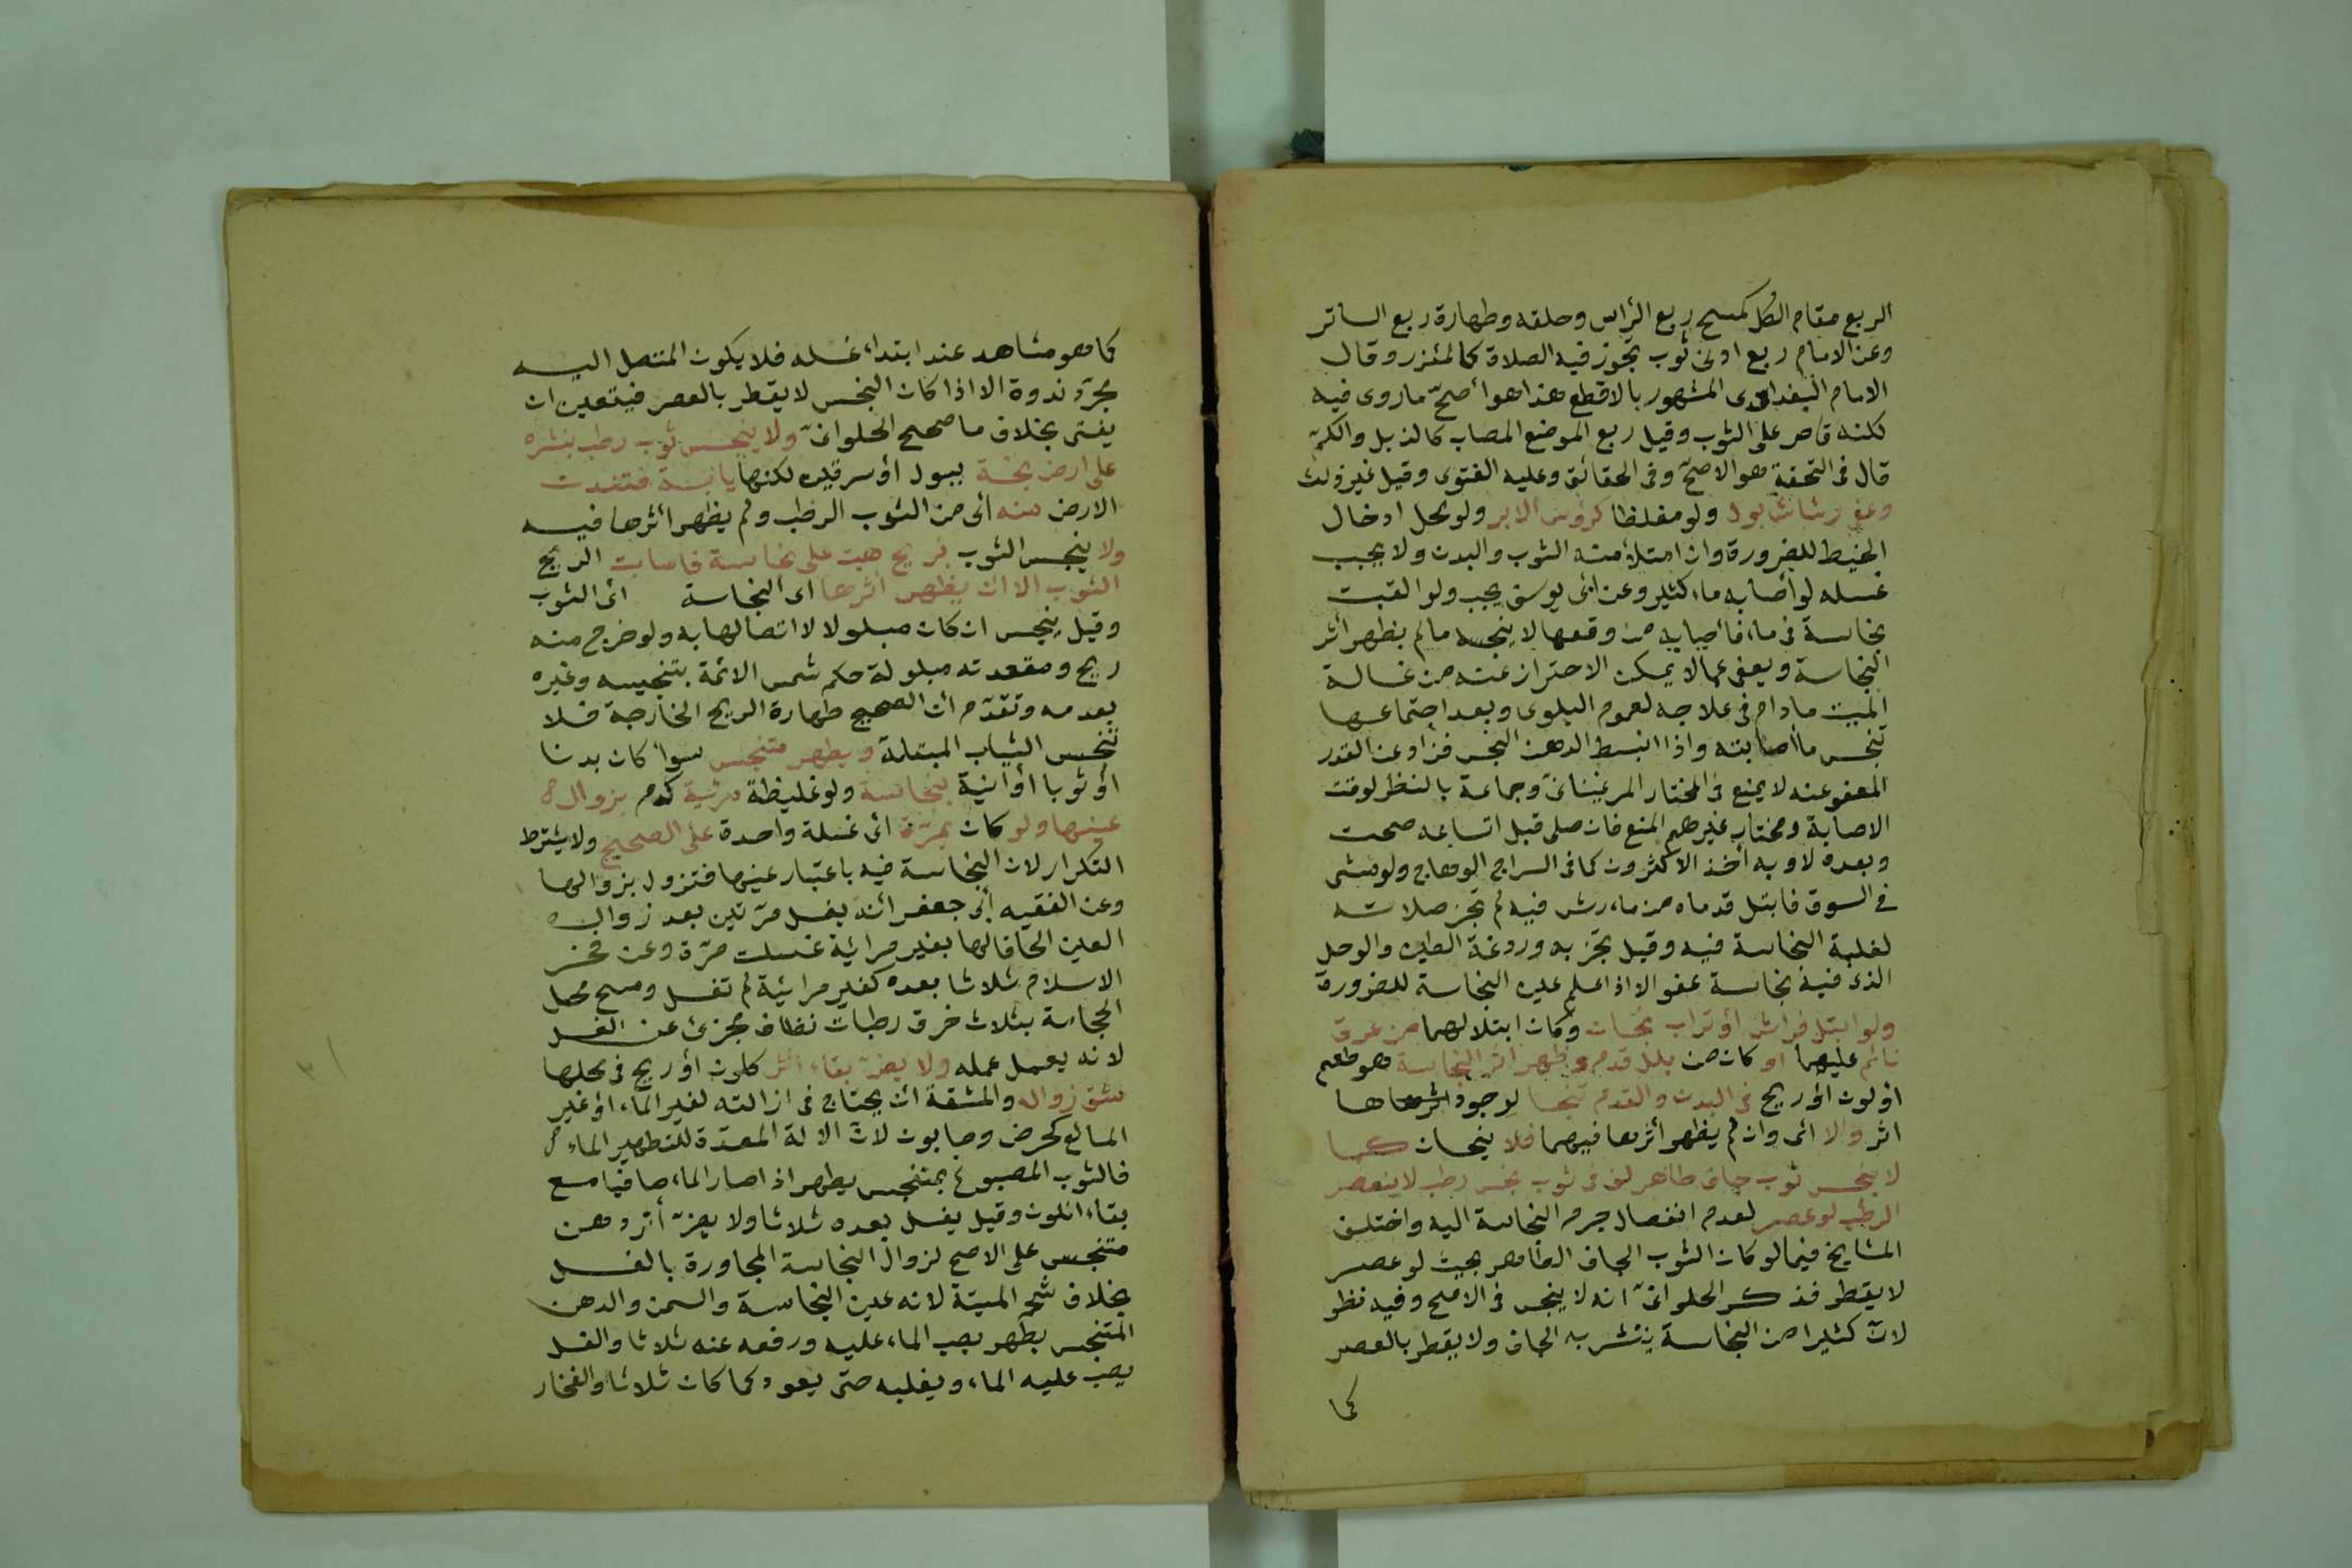 الربع مقام الكل كمسح ربع الرأس وحلقه وطهارة ربع الساتر
وعن الامام ربع ادنى ثوب تجوز فيه الصلاة كالمئزر وقال
الامام البغدادى المشهور بالاقطع هذا هو أصحّ ماروى فيه
لكنه قاصر على الثوب وقيل ربع الموضع المصاب كالذيل والكمّ
قال فى التحفة هو الاصحّ وفى الحقائق وعليه الفتوى وقيل غير ذلك
وعفى رشاش بول ولو مغلظا كرؤس الابر ولو بمحل ادخال
الخيط للضرورة وان امتلأ منه الثوب والبدن ولا يجب
غسله لو أصابه ماء كثير وعن أبى يوسف يجب ولو القيت
نجاسة فى ماء فأصابه من وقعها لا ينجسه مالم يظهر أثر
النجاسة ويعفى عما لا يمكن الاحتراز عنه من غسالة
الميت مادام فى علاجه لعموم البلوى وبعد اجتماعها
تنجس ما أصابته واذا انبسط الدهن النجس فزاد عن القدر
المعفو عنه لا يمنع فى اختيار المرغينانىّ وجماعة بالنظر لوقت
الاصابة ومختار غيرهم المنع فان صلى قبل اتساعه صحت
وبعده لا وبه أخذ الاكثرون كما فى السراج الوهاج ولو مشى
فى السوق فابتل قدماه من ماء رش فيه لم تجز صلاته
لغلبة النجاسة فيه وقيل تجزيه وردغة الطين والوحل
الذى فيه نجاسة عفو الا اذا علم عين النجاسة للضرورة
ولو ابتل فراش أو تراب نجسان وكان ابتلالهما من عرق
نائم عليهما او كان من بلل قدم وظهر أثر النجاسة هو طعم
او لون أو ريح فى البدن والقدم تنجسا لوجودها
اثر والا أى وان لم يظهر أثرها فيهما فلا ينجسان كما
لا ينجس ثوب جاف طاهر لف فى ثوب نجس رطب لا ينعصر
الرطب لو عصر لعدم انفصال جرم النجاسة اليه واختلف
المشايخ فيما لو كان الثوب الجاف الطاهر بحيث لو عصر
لا يقطر فذكر الحلوانىّ انه لا ينجس فى الاصح وفيه نظر
لانّ كثيرا من النجاسة يتشربه الجاف ولا يقطر بالعصر
كما
كما هو مشاهد عند ابتداء غسله فلا يكون المتصل اليه
مجرّد ندوة الا اذا كان النجس لا يقطر بالعصر فيتعين ان
يفتى بخلاف ما صحح الحلوانىّ ولا ينجس ثوب رطب بنشره
على ارض نجسة ببول أو سرقين لكنها يابسة فتندت
الارض منه أى من الثوب الرطب ولم يظهر أثرها فيه
ولا ينجس الثوب بريح هبت على نجاسة فأصابت الريح
الثوب الا ان يظهر أثرها اى النجاسة أى الثوب
وقيل ينجس ان كان مبلولا لا تصالها به ولو خرج منه
ريح ومقعدته مبلولة حكم شمس الائمة بتنجيسه وغيره
بعدمه وتقدّم أن الصحيح طهارة الريح الخارجة فلا
تنجس الثياب المبتلة ويطهر متنجس سواء كان بدنا
أو ثوبا أو آنية بنجاسة ولو غليظة مرئية كدم بزوال
عينها ولو كان بمرّة أى غسلة واحدة على الصحيح ولا يشترط
التكرار لان النجاسة فيه باعتبار عينها فتزول بزوالها
وعن الفقيه أبى جعفر أنه يغسل مرّتين بعد زواله
العين الحاقا لها بغير مرائية غسلت مرّة وعن فخر
الاسلام ثلاثا بعده كغير مرائية لم تغسل ومسح محل
الحجامة بثلاث خرق رطبات نظاف مجزئ عن الغسل
لانه يعمل عمله ولا يضرّ بقاء أثر كلون أو ريح فى محلها
شق زواله والمشقة أن يحتاج فى ازالته لغير الماء أو غير
المائع كحرض وصابون لانّ الالة المعدّة للتطهير الماء
فالثوب المصبوغ بمتنجس يطهر اذا صار الماء صافيا مع
بقاء اللون وقيل يغسل بعده ثلاثا ولا يضرّ أثر دهن
متنجس على الاصح لزوال النجاسة المجاورة بالغسل
بخلاف شحم الميتة لانه عين النجاسة والسمن والدهن
المتنجس يطهر بصب الماء عليه ورفعه عنه ثلاثا والعسل
يصب عليه الماء ويغليه حتى يعود كما كان ثلاثا والفخار